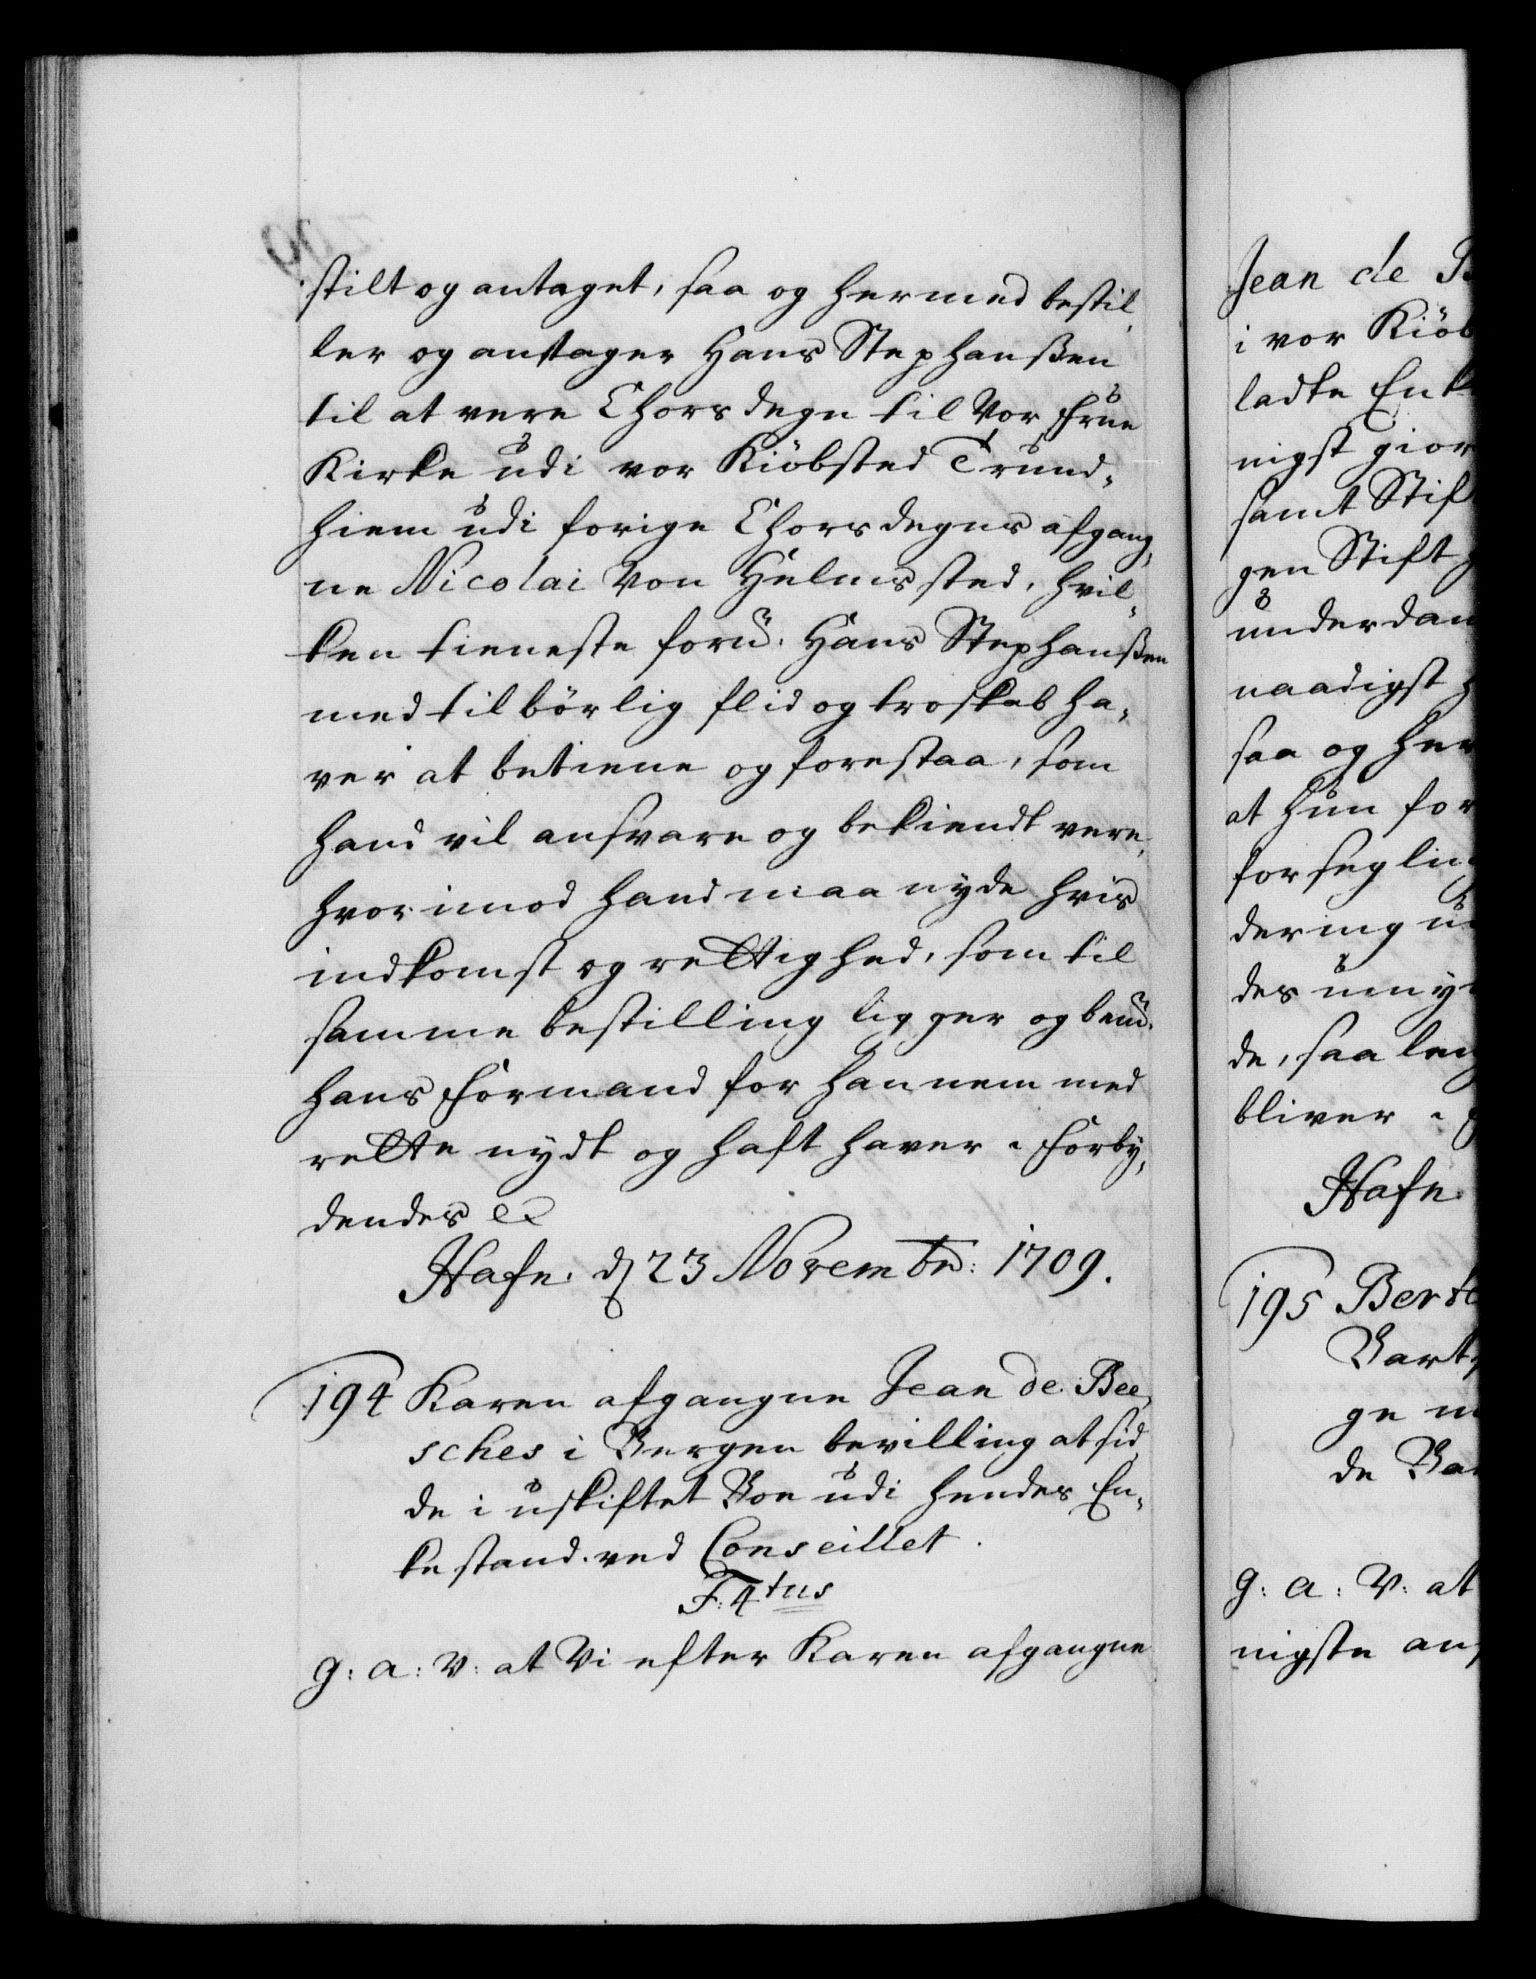 stilt og antaget, saa og hermed bestil,
ler og antager Hans Stephanßen
til at vere Chorsdegn til Vor Frue
Kirke udi vor Kiöbsted Trund,
hiem udi forige Chorsdegns afgang,
ne Nicolai Von Helmssted, hvil,
ken tieneste forn: Hans Stephanßen
med tilbörlig flid og troskab ha,
ver at betiene og forestaa, som
hand vil ansvare og bekiendt vere,
hvorimod hand maa nyde hvis
indkomst og rettighed, som til
samme bestilling ligger og bem:
hans Formand for hannem med
rette nydt og haft haver. Forby,
dendes &
Hafn. d 23 Novembr: 1709.
194 Karen afgangne Jean de Bee,
sches i Bergen bevilling at sid
de i uskiftet Boe udi hendes En,
kestand. ved Conseillet.
F: 4tus
G: A: V: at Vi efter Karen afgangne
Jean de B
i vor Kiöb
ladte Enk
nigst gior
samt Stift
gen Stift
underdan
naadigst
saa og her
at hun for
forsegling
dering
des umy
de, saa leng
bliver.
Hafn.
195 Berte
Bart
ge
de Bar
G: A: V: at
nigste ans